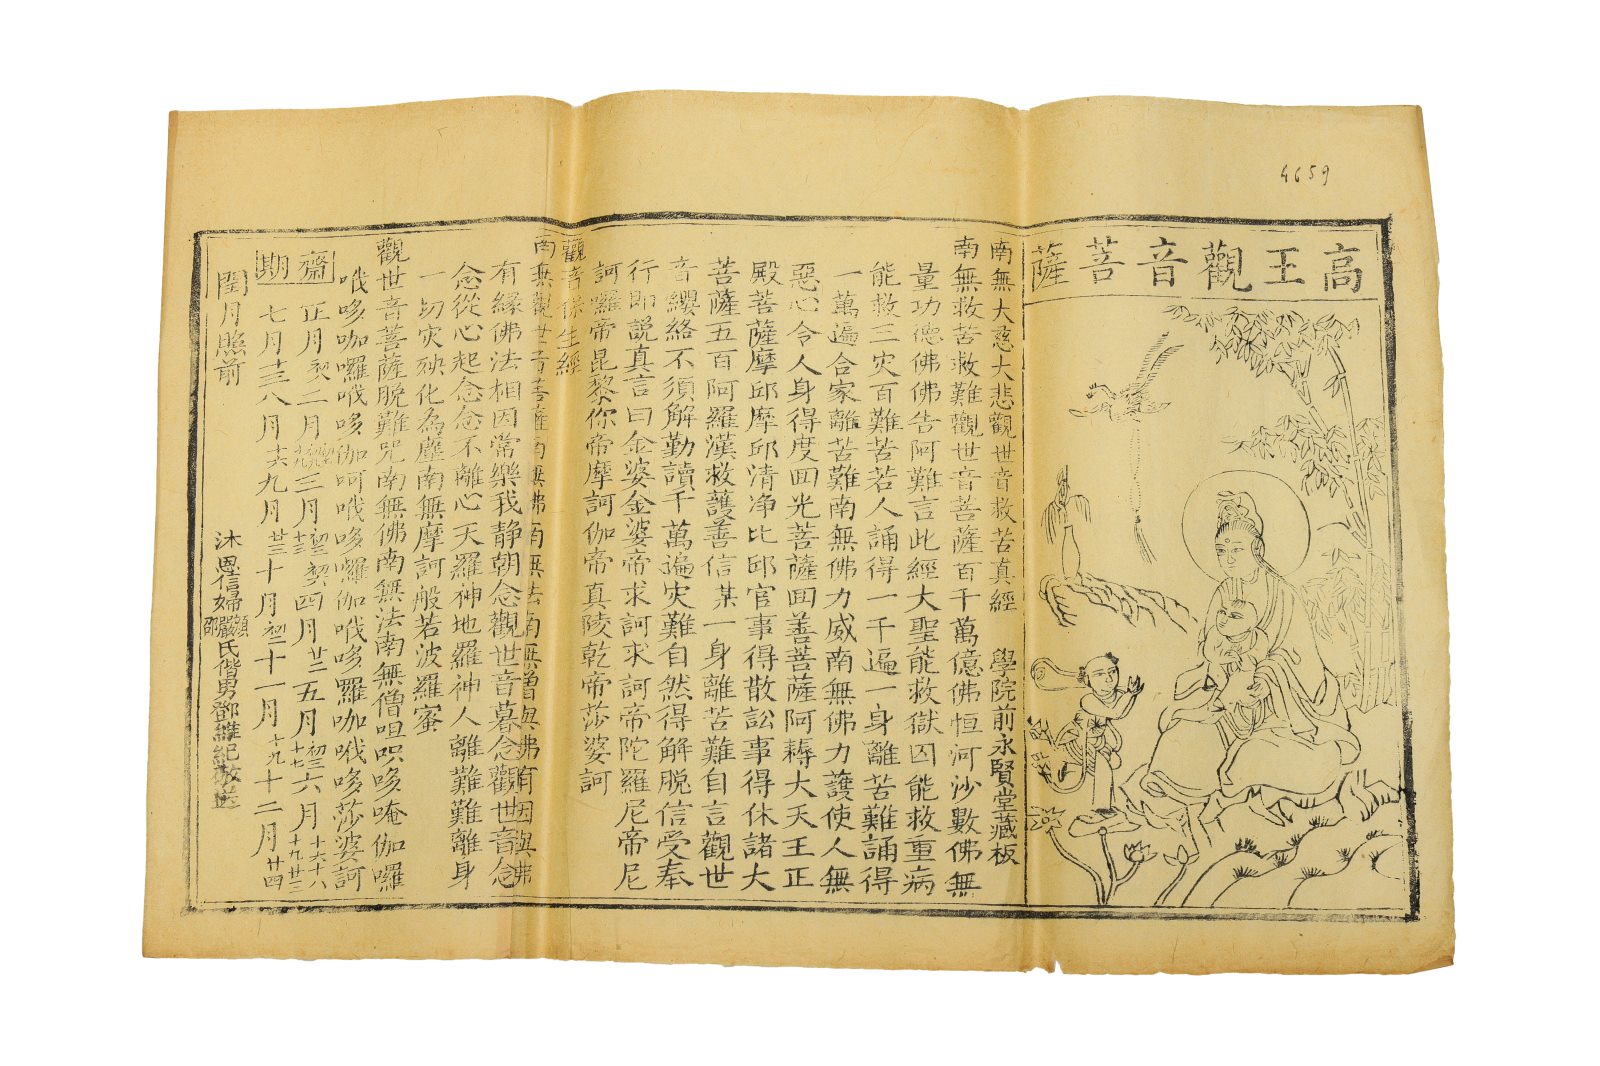 4659
高王觀音菩薩
南無大慈大悲觀世音救苦真經 學院前永賢堂藏板
南無救苦救難觀世音菩薩百千萬億佛恒河沙數佛無
量功德佛佛告阿難言此經大聖能救獄囚能救重病
能救三灾百難苦若人誦得一千遍一身離苦難誦得
一萬遍合家離苦難南無佛力威南無佛力護使人無
惡心令人身得度囬光菩薩囬善菩薩阿耨大天王正
殿菩薩摩邱摩邱清净比邱官事得散訟事得休諸大
菩薩五百阿羅漢救護善信某一身離苦難自言觀世
音纓絡不須解勤讀千萬遍灾難自然得解脱信受奉
行即説真言曰金婆金婆帝求訶求訶帝陀羅尼帝尼
訶囉帝昆黎你帝摩訶伽帝真陵乾帝莎婆訶
觀音保生經
南無觀世音菩薩南無佛南無法南無僧與佛有因與佛
有緣佛法相因常樂我静朝念觀世音暮念觀世音念
念從心起念念不離心天羅神地羅神人離難難離身
一切灾殃化為塵南無摩訶般若波羅蜜
觀世音菩薩脱難咒南無佛南無法南無僧呾呮哆唵伽囉
哦哆咖囉哦哆伽呵哦哆囉伽哦哆囉咖哦哆莎婆訶
齋期
正月初八二月三月初三初六十三四月廿二五月初三十七六月十六十八十九廿三
七月十三八月十六九月廿三十月初二十一月十九十二月廿四
閏月照前
沐恩信婦嚴氏偕男鄧維紀敬送